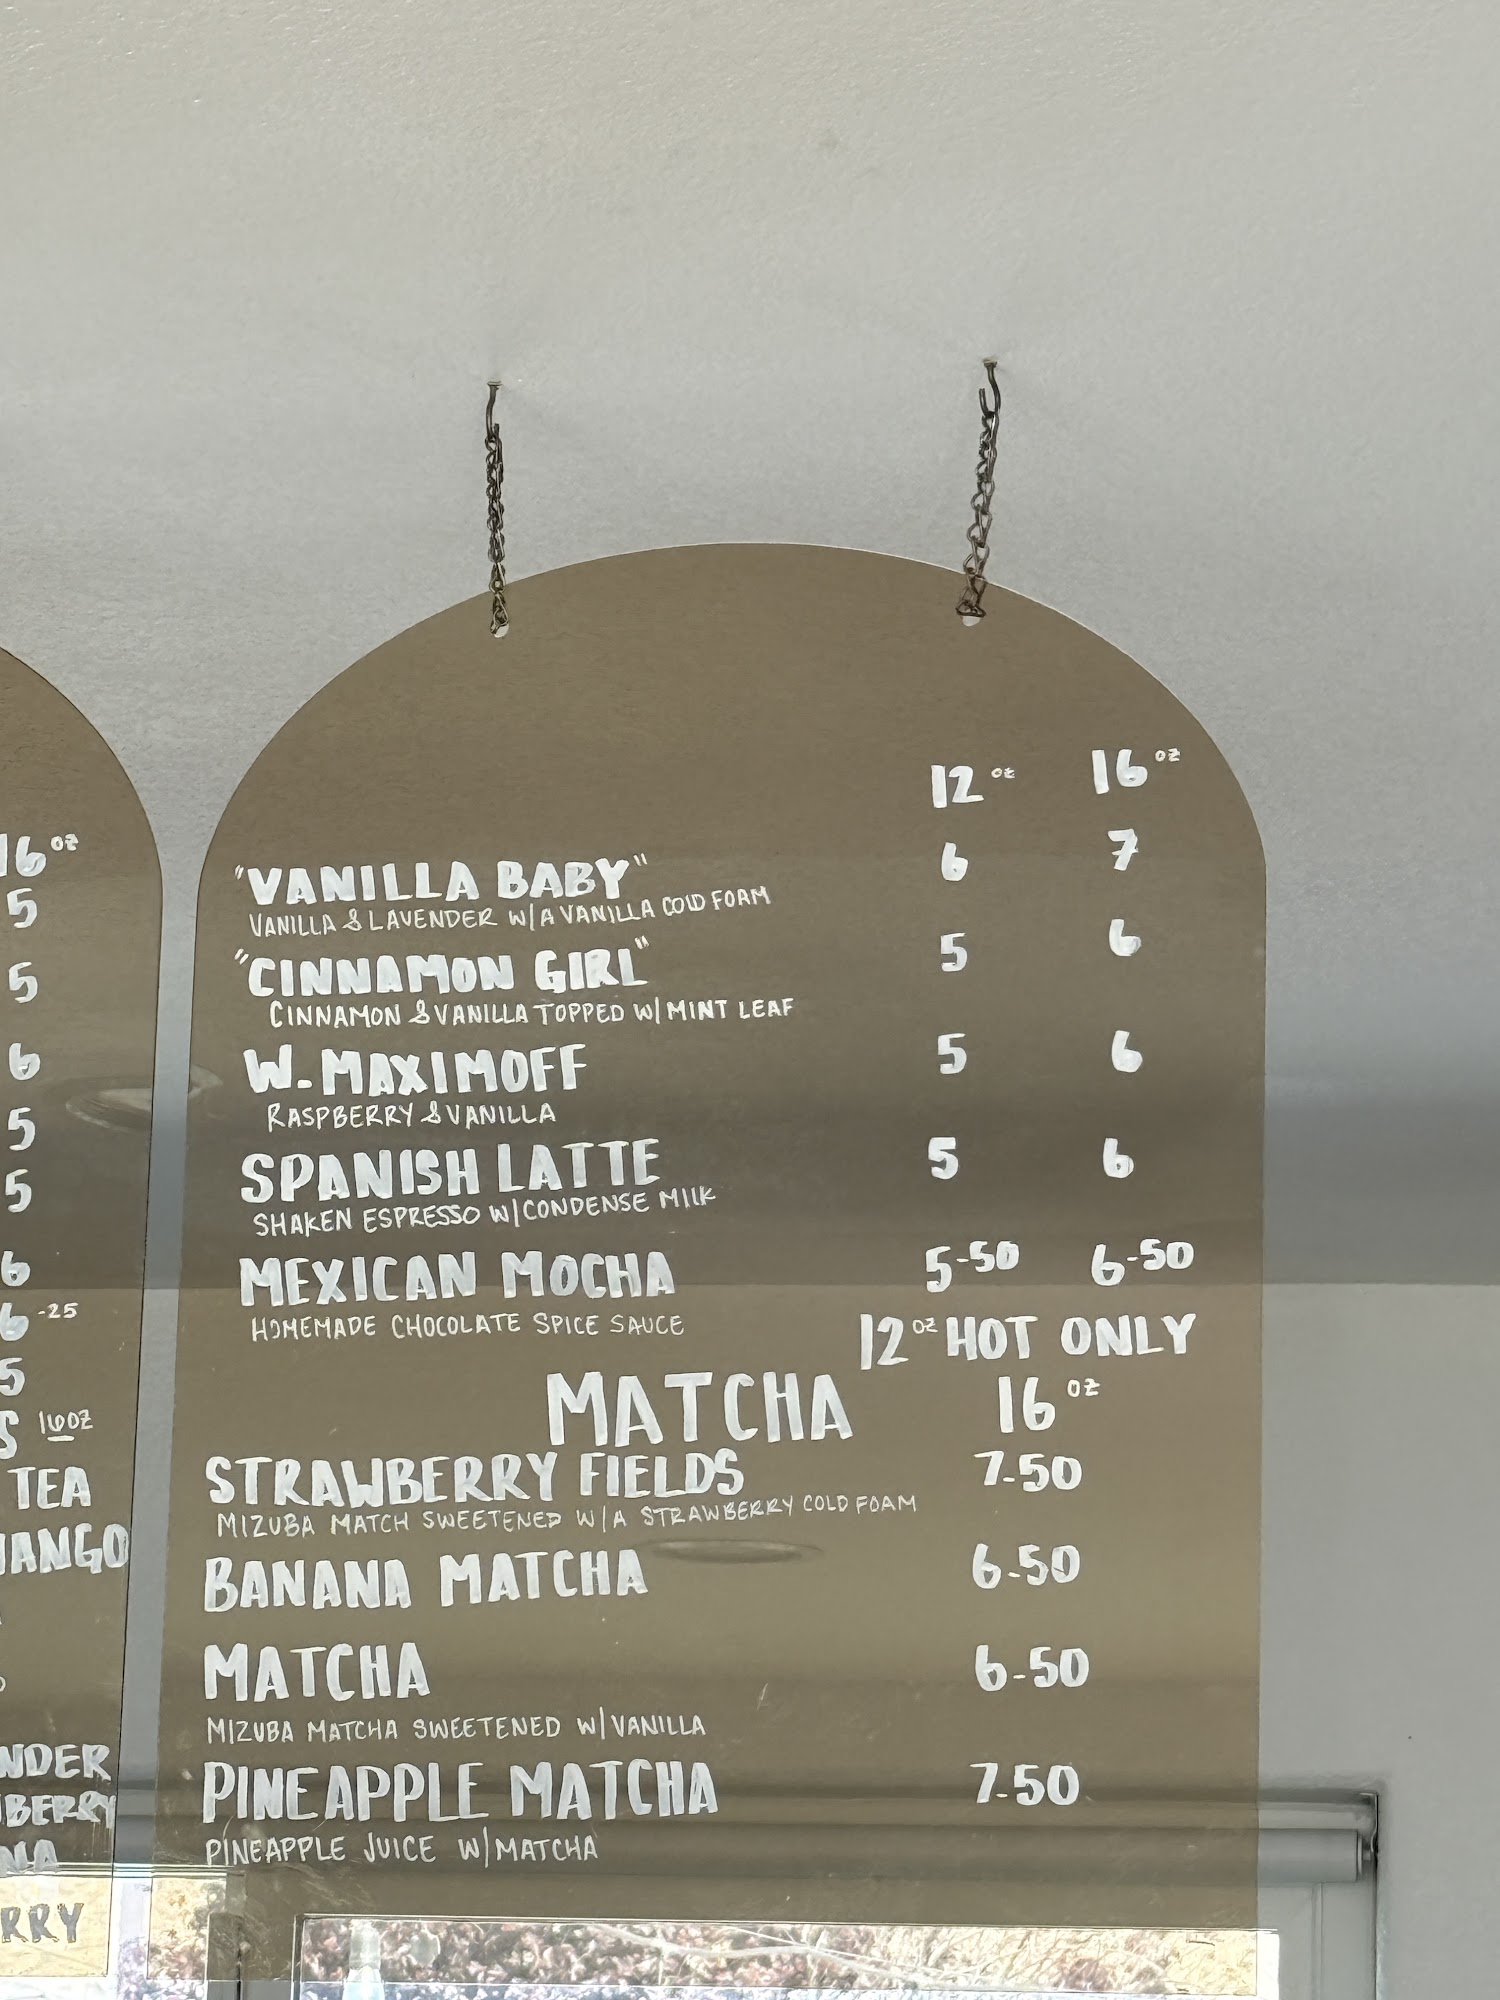 16oz
5
5
6
5
5
6
6-25
5
16oz
TEA
RRY
12oz 16oz
"VANILLA BABY" 6 7
VANILLA & LAVENDER W/A VANILLA COLD FOAM
"CINNAMON GIRL" 5 6
CINNAMON & VANILLA TOPPED W/ MINT LEAF
W. MAXIMOFF 5 6
RASPBERRY & VANILLA
SPANISH LATTE 5 6
SHAKEN ESPRESSO W/CONDENSE MILK
MEXICAN MOCHA 5-50 6-50
HOMEMADE CHOCOLATE SPICE SAUCE
12oz HOT ONLY
MATCHA 16oz
STRAWBERRY FIELDS 7-50
MIZUBA MATCH SWEETENED W/A STRAWBERRY COLD FOAM
BANANA MATCHA 6-50
MATCHA 6-50
MIZUBA MATCHA SWEETENED W/VANILLA
PINEAPPLE MATCHA 7-50
PINEAPPLE JUICE W/MATCHA